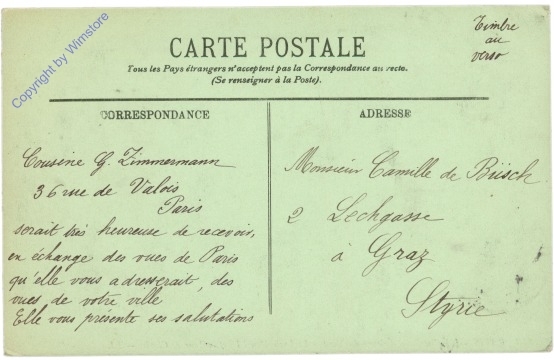 Copyright by Wimstore
Timbre
au
verso
CARTE POSTALE
Tous les Pays étrangers n'acceptent pas la Correspondance au recto.
(Se renseigner à la Poste).
CORRESPONDANCE
Cousine G. Zimmermann
36 rue de Valois
Paris
serait très heureuse de recevoir,
en échange des vues de Paris
qu'elle vous adresserait, des
vues de votre ville
Elle vous présente ses salutations
ADRESSE
Monsieur Camille de Büsch
2 Lechgasse
à Graz
Styrie